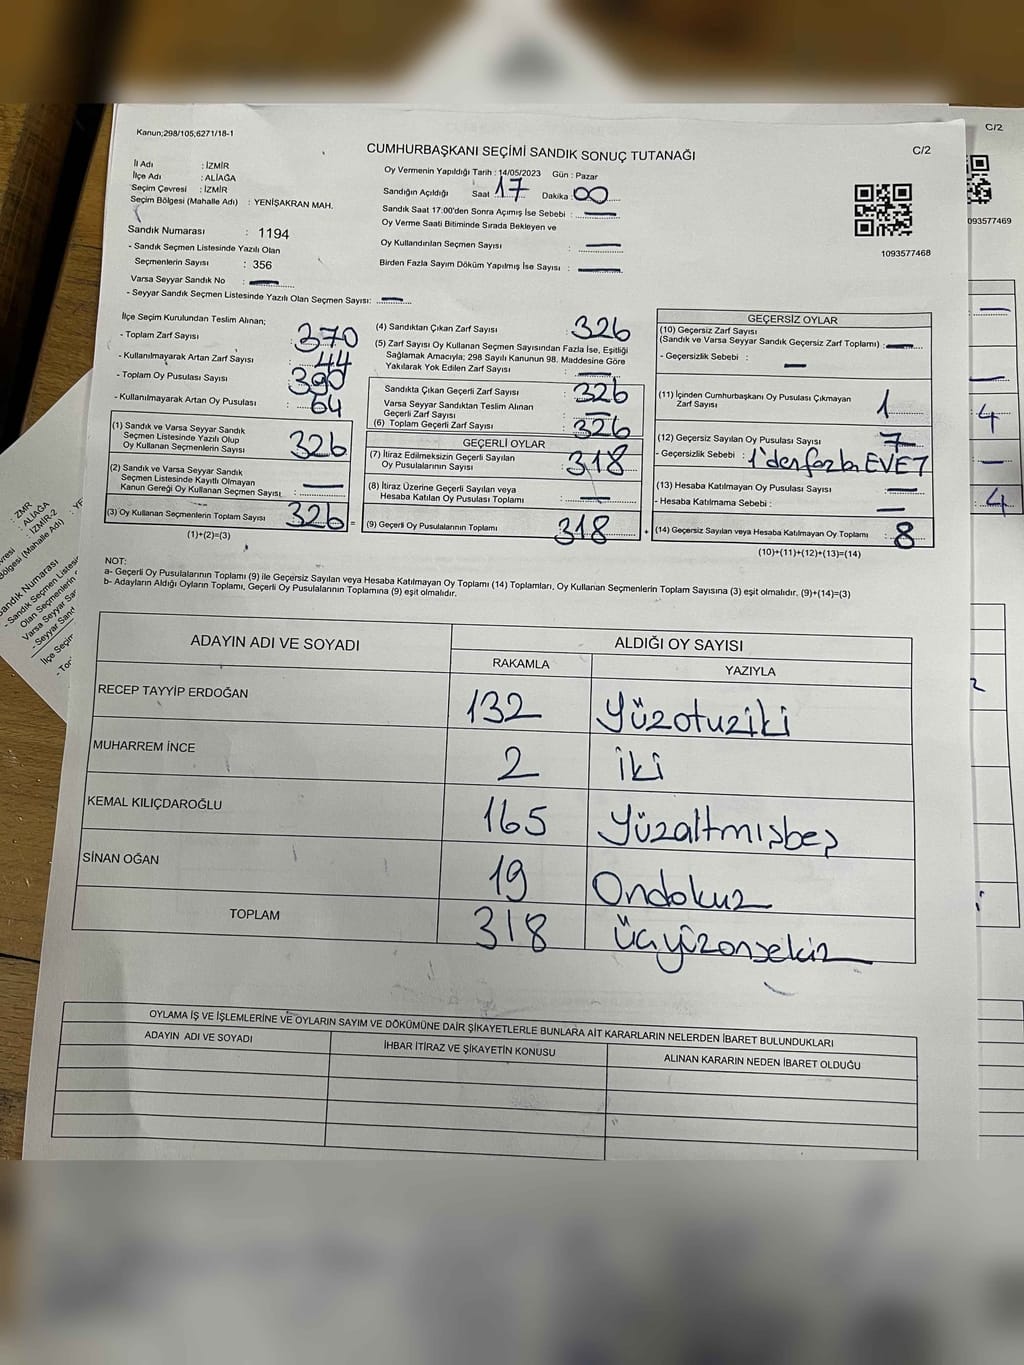 Kanun;298/105;6271/18-1
C/2
CUMHURBAŞKANI SEÇİMİ SANDIK SONUÇ TUTANAĞI
İl Adı : İZMİR
İlçe Adı : ALİAĞA
Seçim Çevresi : İZMİR
Seçim Bölgesi (Mahalle Adı) : YENİŞAKRAN MAH.
Sandık Numarası : 1194
- Sandık Seçmen Listesinde Yazılı Olan
Seçmenlerin Sayısı : 356
Varsa Seyyar Sandık No : —
- Seyyar Sandık Seçmen Listesinde Yazılı Olan Seçmen Sayısı: —
Oy Vermenin Yapıldığı Tarih : 14/05/2023 Gün : Pazar
Sandığın Açıldığı Saat : 17 Dakika : 00
Sandık Saat 17:00'den Sonra Açımış İse Sebebi : —
Oy Verme Saati Bitiminde Sırada Bekleyen ve
Oy Kullandırılan Seçmen Sayısı : —
Birden Fazla Sayım Döküm Yapılmış İse Sayısı : —
1093577468
İlçe Seçim Kurulundan Teslim Alınan;
- Toplam Zarf Sayısı : 370
- Kullanılmayarak Artan Zarf Sayısı : 44
- Toplam Oy Pusulası Sayısı : 390
- Kullanılmayarak Artan Oy Pusulası : 64
(1) Sandık ve Varsa Seyyar Sandık
Seçmen Listesinde Yazılı Olup
Oy Kullanan Seçmenlerin Sayısı 326
(2) Sandık ve Varsa Seyyar Sandık
Seçmen Listesinde Kayıtlı Olmayan
Kanun Gereği Oy Kullanan Seçmen Sayısı : —
(3) Oy Kullanan Seçmenlerin Toplam Sayısı 326 =
(1)+(2)=(3)
(4) Sandıktan Çıkan Zarf Sayısı : 326
(5) Zarf Sayısı Oy Kullanan Seçmen Sayısından Fazla İse, Eşitliği
Sağlamak Amacıyla; 298 Sayılı Kanunun 98. Maddesine Göre
Yakılarak Yok Edilen Zarf Sayısı : —
Sandıkta Çıkan Geçerli Zarf Sayısı : 326
Varsa Seyyar Sandıktan Teslim Alınan
Geçerli Zarf Sayısı : —
(6) Toplam Geçerli Zarf Sayısı : 326
GEÇERLİ OYLAR
(7) İtiraz Edilmeksizin Geçerli Sayılan
Oy Pusulalarının Sayısı : 318
(8) İtiraz Üzerine Geçerli Sayılan veya
Hesaba Katılan Oy Pusulası Toplamı : —
(9) Geçerli Oy Pusulalarının Toplamı 318 +
GEÇERSİZ OYLAR
(10) Geçersiz Zarf Sayısı
(Sandık ve Varsa Seyyar Sandık Geçersiz Zarf Toplamı) : —
- Geçersizlik Sebebi : —
(11) İçinden Cumhurbaşkanı Oy Pusulası Çıkmayan
Zarf Sayısı : 1
(12) Geçersiz Sayılan Oy Pusulası Sayısı : 7
- Geçersizlik Sebebi : 1'den fazla EVET
(13) Hesaba Katılmayan Oy Pusulası Sayısı : —
- Hesaba Katılmama Sebebi : —
(14) Geçersiz Sayılan veya Hesaba Katılmayan Oy Toplamı : 8
(10)+(11)+(12)+(13)=(14)
NOT:
a- Geçerli Oy Pusulalarının Toplamı (9) ile Geçersiz Sayılan veya Hesaba Katılmayan Oy Toplamı (14) Toplamları, Oy Kullanan Seçmenlerin Toplam Sayısına (3) eşit olmalıdır. (9)+(14)=(3)
b- Adayların Aldığı Oyların Toplamı, Geçerli Oy Pusulalarının Toplamına (9) eşit olmalıdır.
ADAYIN ADI VE SOYADI ALDIĞI OY SAYISI
RAKAMLA YAZIYLA
RECEP TAYYİP ERDOĞAN 132 Yüzotuziki
MUHARREM İNCE 2 iki
KEMAL KILIÇDAROĞLU 165 Yüzaltmışbeş
SİNAN OĞAN 19 Ondokuz
TOPLAM 318 Üçyüzonsekiz
OYLAMA İŞ VE İŞLEMLERİNE VE OYLARIN SAYIM VE DÖKÜMÜNE DAİR ŞİKAYETLERLE BUNLARA AİT KARARLARIN NELERDEN İBARET BULUNDUKLARI
ADAYIN ADI VE SOYADI İHBAR İTİRAZ VE ŞİKAYETİN KONUSU ALINAN KARARIN NEDEN İBARET OLDUĞU
C/2
093577469
4
4